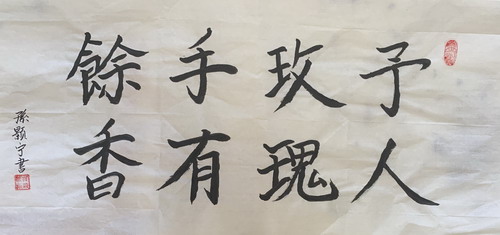 予人
玫瑰
手有
餘香
孫顥宁書